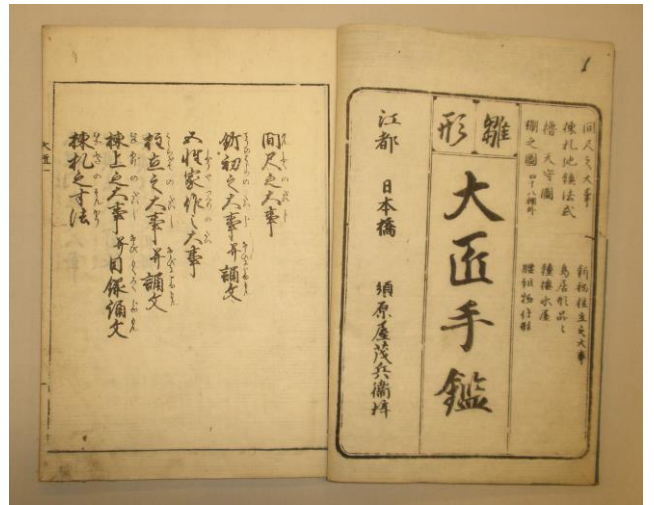 間尺之大事
棟札地鎮法式
櫓 天守圖
棚之圖 四十八棚外
新初柱立之大事
鳥居形品々
鐘樓水屋
腰組物仕形
雛形
大匠手鑑
江都 日本橋 須原屋茂兵衞梓
間尺之大事
釿初之大事并誦文
五性家作之大事
柱立之大事并誦文
棟上之大事并目録誦文
棟札之寸法
大匠一